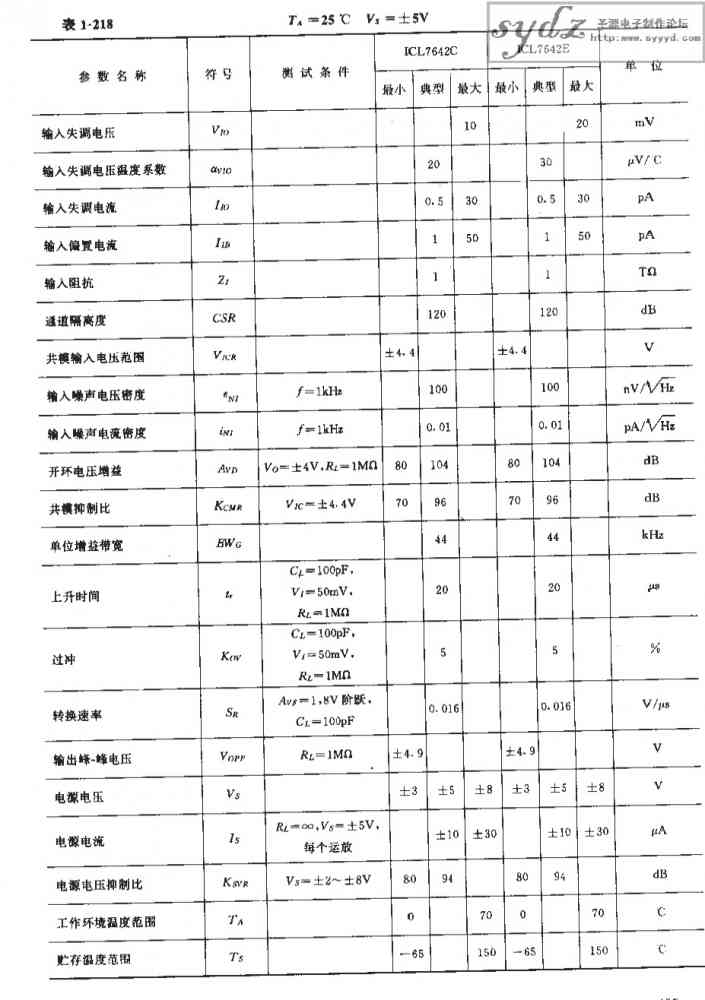 表 1-218 T_A=25℃ V_S=±5V
sydz 圣源电子制作论坛
http:www.syyyd.com
参数名称 符号 测试条件 ICL7642C ICL7642E 单位
最小 典型 最大 最小 典型 最大
输入失调电压 V_IO 10 20 mV
输入失调电压温度系数 α_VIO 20 30 μV/℃
输入失调电流 I_IO 0.5 30 0.5 30 pA
输入偏置电流 I_IB 1 50 1 50 pA
输入阻抗 Z_I 1 1 TΩ
通道隔离度 CSR 120 120 dB
共模输入电压范围 V_ICR ±4.4 ±4.4 V
输入噪声电压密度 e_NI f=1kHz 100 100 nV/√Hz
输入噪声电流密度 i_NI f=1kHz 0.01 0.01 pA/√Hz
开环电压增益 A_VD V_O=±4V,R_L=1MΩ 80 104 80 104 dB
共模抑制比 K_CMR V_IC=±4.4V 70 96 70 96 dB
单位增益带宽 BW_G 44 44 kHz
上升时间 t_r C_L=100pF,
V_I=50mV,
R_L=1MΩ 20 20 μs
过冲 K_OV C_L=100pF,
V_I=50mV,
R_L=1MΩ 5 5 %
转换速率 S_R A_VF=1,8V 阶跃,
C_L=100pF 0.016 0.016 V/μs
输出峰-峰电压 V_OPP R_L=1MΩ ±4.9 ±4.9 V
电源电压 V_S ±3 ±5 ±8 ±3 ±5 ±8 V
电源电流 I_S R_L=∞,V_S=±5V,
每个运放 ±10 ±30 ±10 ±30 μA
电源电压抑制比 K_SVR V_S=±2～±8V 80 94 80 94 dB
工作环境温度范围 T_A 0 70 0 70 C
贮存温度范围 T_S -65 150 -65 150 C